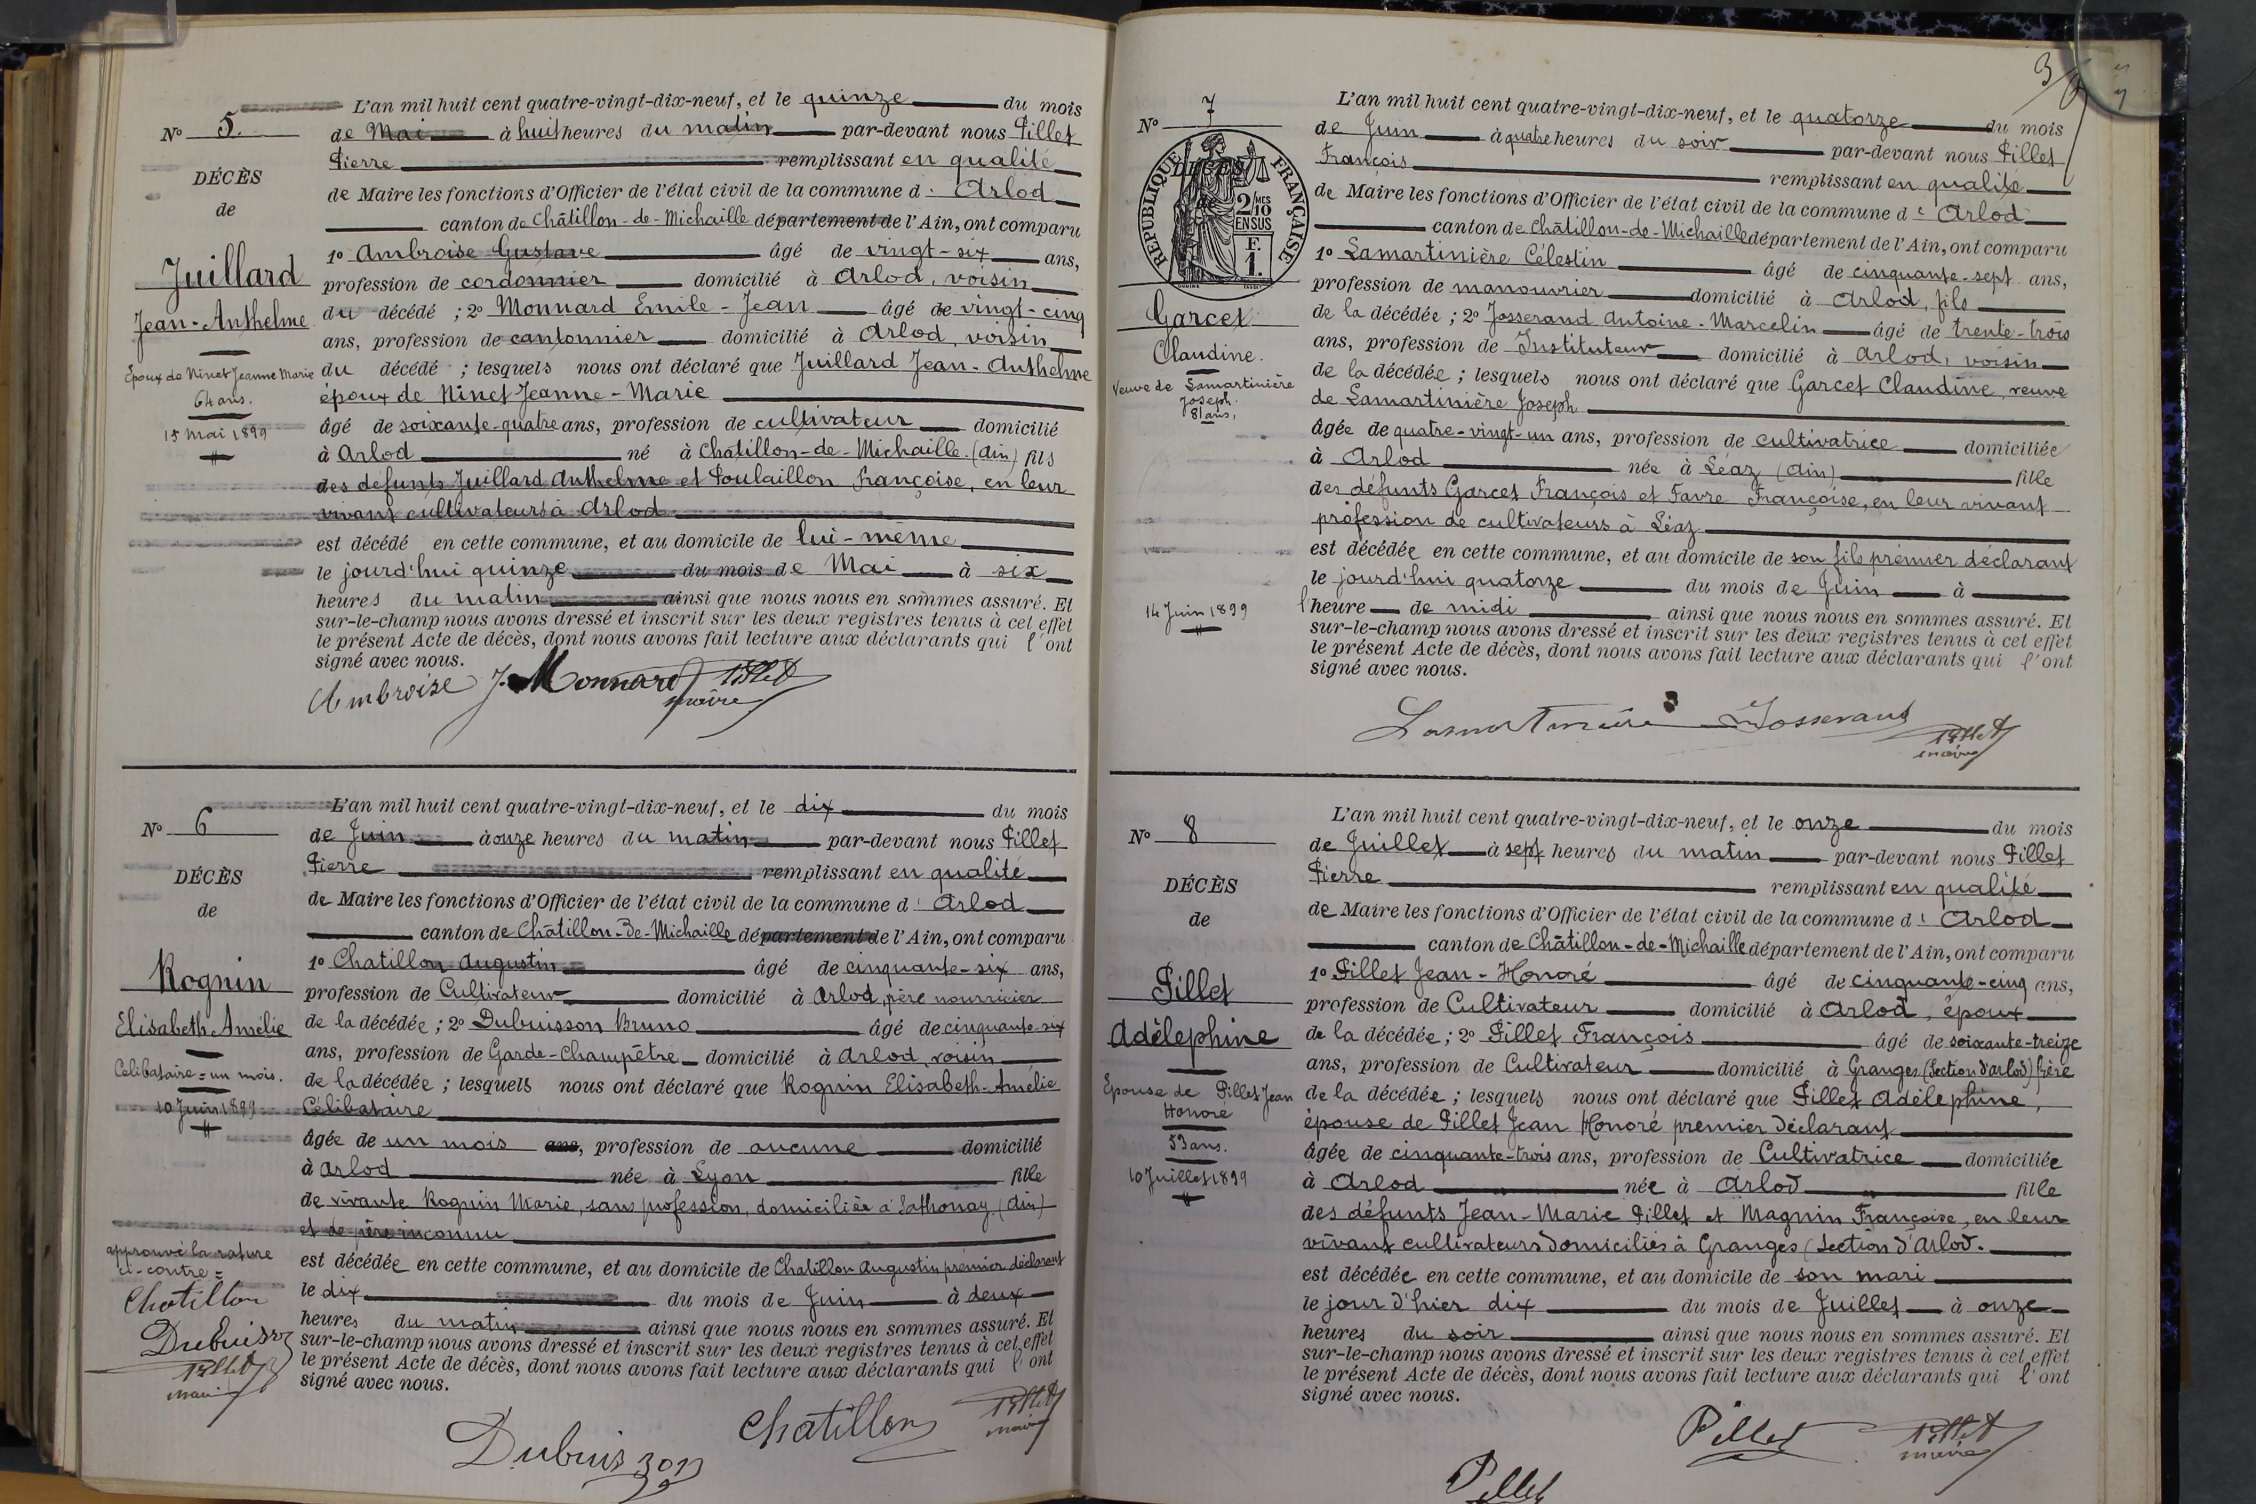 L'an mil huit cent quatre-vingt-dix-neuf, et le quinze du mois
N° 5.
de Mai à huit heures du matin par-devant nous Pillet
Pierre remplissant en qualité
DÉCÈS
de Maire les fonctions d'Officier de l'état civil de la commune d' Arlod
de
canton de Châtillon-de-Michaille département de l'Ain, ont comparu
1° Ambroise Gustave âgé de vingt-six ans,
Juillard
profession de cordonnier domicilié à Arlod, voisin
Jean-Anthelme
du décédé ; 2° Monnard Emile-Jean âgé de vingt-cinq
ans, profession de cantonnier domicilié à Arlod, voisin
Epoux de Ninet Jeanne Marie
du décédé ; lesquels nous ont déclaré que Juillard Jean-Anthelme
64 ans.
époux de Ninet Jeanne-Marie
15 Mai 1899
âgé de soixante-quatre ans, profession de cultivateur domicilié
à Arlod né à Chatillon-de-Michaille (Ain) fils
des défunts Juillard Anthelme et Poulaillon Françoise, en leur
vivant cultivateurs à Arlod
est décédé en cette commune, et au domicile de lui-même
le jourd'hui quinze du mois de Mai à six
heures du matin ainsi que nous nous en sommes assuré. Et
sur-le-champ nous avons dressé et inscrit sur les deux registres tenus à cet effet
le présent Acte de décès, dont nous avons fait lecture aux déclarants qui l'ont
signé avec nous.
Ambroise J. Monnard Pillet
maire
L'an mil huit cent quatre-vingt-dix-neuf, et le dix du mois
N° 6
de Juin à onze heures du matin par-devant nous Pillet
Pierre remplissant en qualité
DÉCÈS
de Maire les fonctions d'Officier de l'état civil de la commune d' Arlod
de
canton de Châtillon-de-Michaille département de l'Ain, ont comparu
1° Chatillon Augustin âgé de cinquante-six ans,
Rognin
profession de Cultivateur domicilié à Arlod, père nourricier
Elisabeth Amélie
de la décédée ; 2° Dubuisson Bruno âgé de cinquante-six
ans, profession de Garde-Champêtre domicilié à Arlod, voisin
Célibataire = un mois.
de la décédée ; lesquels nous ont déclaré que Rognin Elisabeth-Amélie
10 Juin 1899
Célibataire
âgée de un mois ans, profession de aucune domicilié
à Arlod née à Lyon fille
de vivante Rognin Marie, sans profession, domiciliée à Sathonay, (Ain)
et de père inconnu
approuvé la rature
ci-contre =
Chatillon
Dubuisson
Pillet
maire
est décédée en cette commune, et au domicile de Chatillon Augustin premier déclarant
le dix du mois de Juin à deux
heures du matin ainsi que nous nous en sommes assuré. Et
sur-le-champ nous avons dressé et inscrit sur les deux registres tenus à cet effet
le présent Acte de décès, dont nous avons fait lecture aux déclarants qui l'ont
signé avec nous.
Dubuisson Châtillon Pillet
maire
3
L'an mil huit cent quatre-vingt-dix-neuf, et le quatorze du mois
N° 7
de Juin à quatre heures du soir par-devant nous Pillet
DÉCÈS
RÉPUBLIQUE FRANÇAISE
2 MES
10
EN SUS
F.
1.
François remplissant en qualité
de Maire les fonctions d'Officier de l'état civil de la commune d' Arlod
canton de Châtillon-de-Michaille département de l'Ain, ont comparu
1° Lamartinière Célestin âgé de cinquante-sept ans,
profession de manouvrier domicilié à Arlod, fils
Garcet
de la décédée ; 2° Josserand Antoine-Marcelin âgé de trente-trois
Claudine.
ans, profession de Instituteur domicilié à Arlod, voisin
Veuve de Lamartinière
Joseph.
81 ans.
de la décédée ; lesquels nous ont déclaré que Garcet Claudine, veuve
de Lamartinière Joseph
âgée de quatre-vingt-un ans, profession de cultivatrice domiciliée
à Arlod née à Léaz (Ain) fille
des défunts Garcet François et Favre Françoise, en leur vivant
profession de cultivateurs à Léaz
est décédée en cette commune, et au domicile de son fils premier déclarant
le jourd'hui quatorze du mois de Juin à
14 Juin 1899
l'heure de midi ainsi que nous nous en sommes assuré. Et
sur-le-champ nous avons dressé et inscrit sur les deux registres tenus à cet effet
le présent Acte de décès, dont nous avons fait lecture aux déclarants qui l'ont
signé avec nous.
Lamartinière Josserand Pillet
maire
L'an mil huit cent quatre-vingt-dix-neuf, et le onze du mois
N° 8
de Juillet à sept heures du matin par-devant nous Pillet
Pierre remplissant en qualité
DÉCÈS
de Maire les fonctions d'Officier de l'état civil de la commune d' Arlod
de
canton de Châtillon-de-Michaille département de l'Ain, ont comparu
1° Pillet Jean-Honoré âgé de cinquante-cinq ans,
Pillet
profession de Cultivateur domicilié à Arlod, époux
Adèlephine
de la décédée ; 2° Pillet François âgé de soixante-treize
ans, profession de Cultivateur domicilié à Granges (Section d'Arlod) frère
Epouse de Pillet Jean
Honoré
de la décédée ; lesquels nous ont déclaré que Pillet Adèlephine,
épouse de Pillet Jean Honoré premier déclarant
53 ans.
âgée de cinquante-trois ans, profession de Cultivatrice domiciliée
10 Juillet 1899
à Arlod née à Arlod fille
des défunts Jean-Marie Pillet et Magnin Françoise, en leur
vivant cultivateurs domiciliés à Granges (Section d'Arlod.
est décédée en cette commune, et au domicile de son mari
le jour d'hier dix du mois de Juillet à onze
heures du soir ainsi que nous nous en sommes assuré. Et
sur-le-champ nous avons dressé et inscrit sur les deux registres tenus à cet effet
le présent Acte de décès, dont nous avons fait lecture aux déclarants qui l'ont
signé avec nous.
Pillet Pillet
maire
Pillet